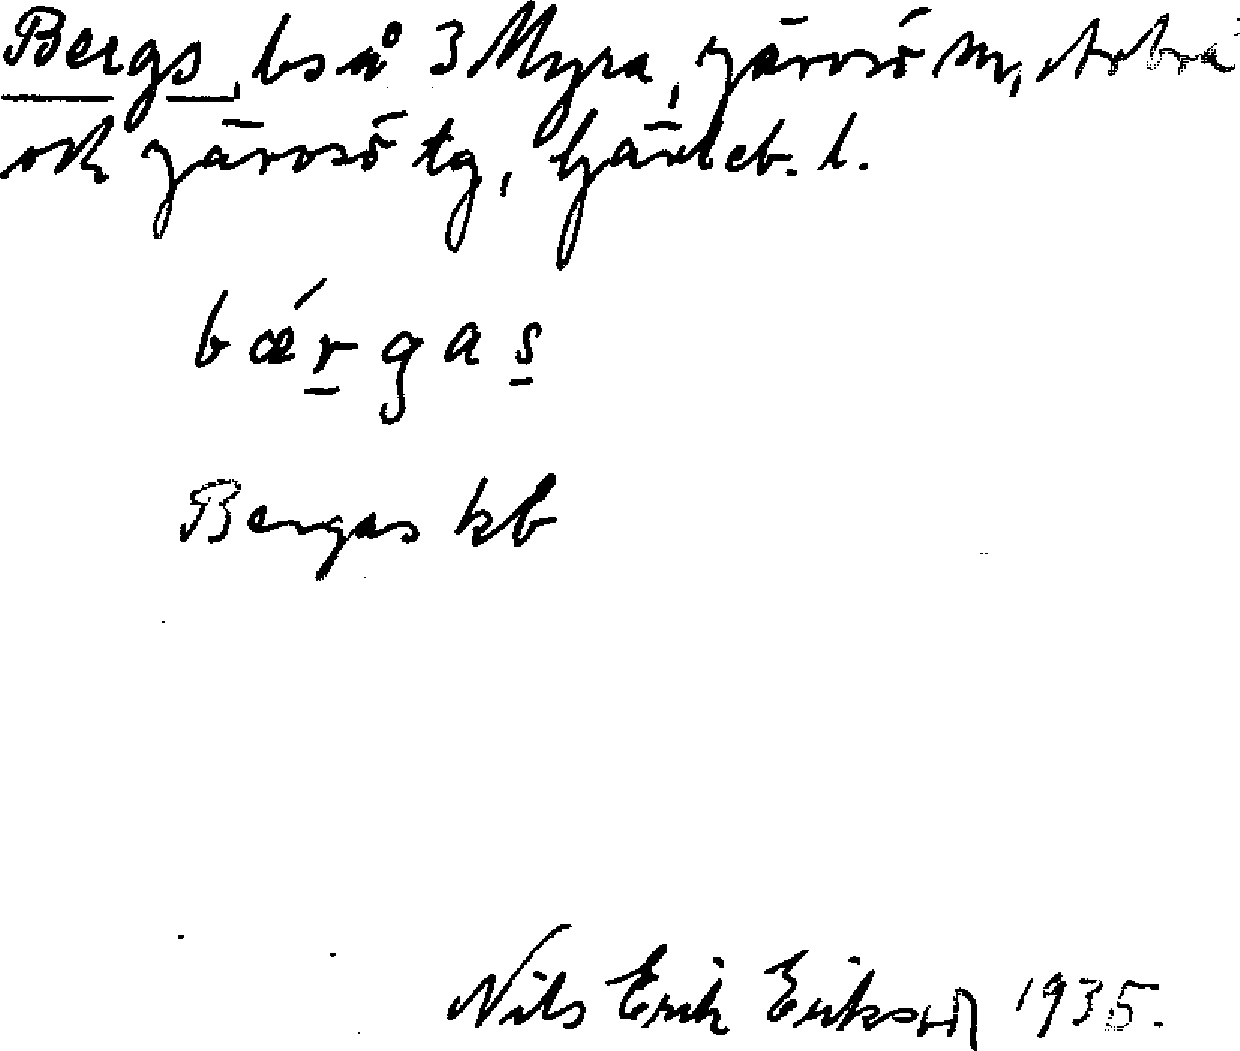 Bergs, bs å 3 Myra, Järvsö sn, Arbrå
ock Järvsö tg, Gävleb. l.
bǽrgas
Bergas kb
Nils Erik Eriksson 1935.